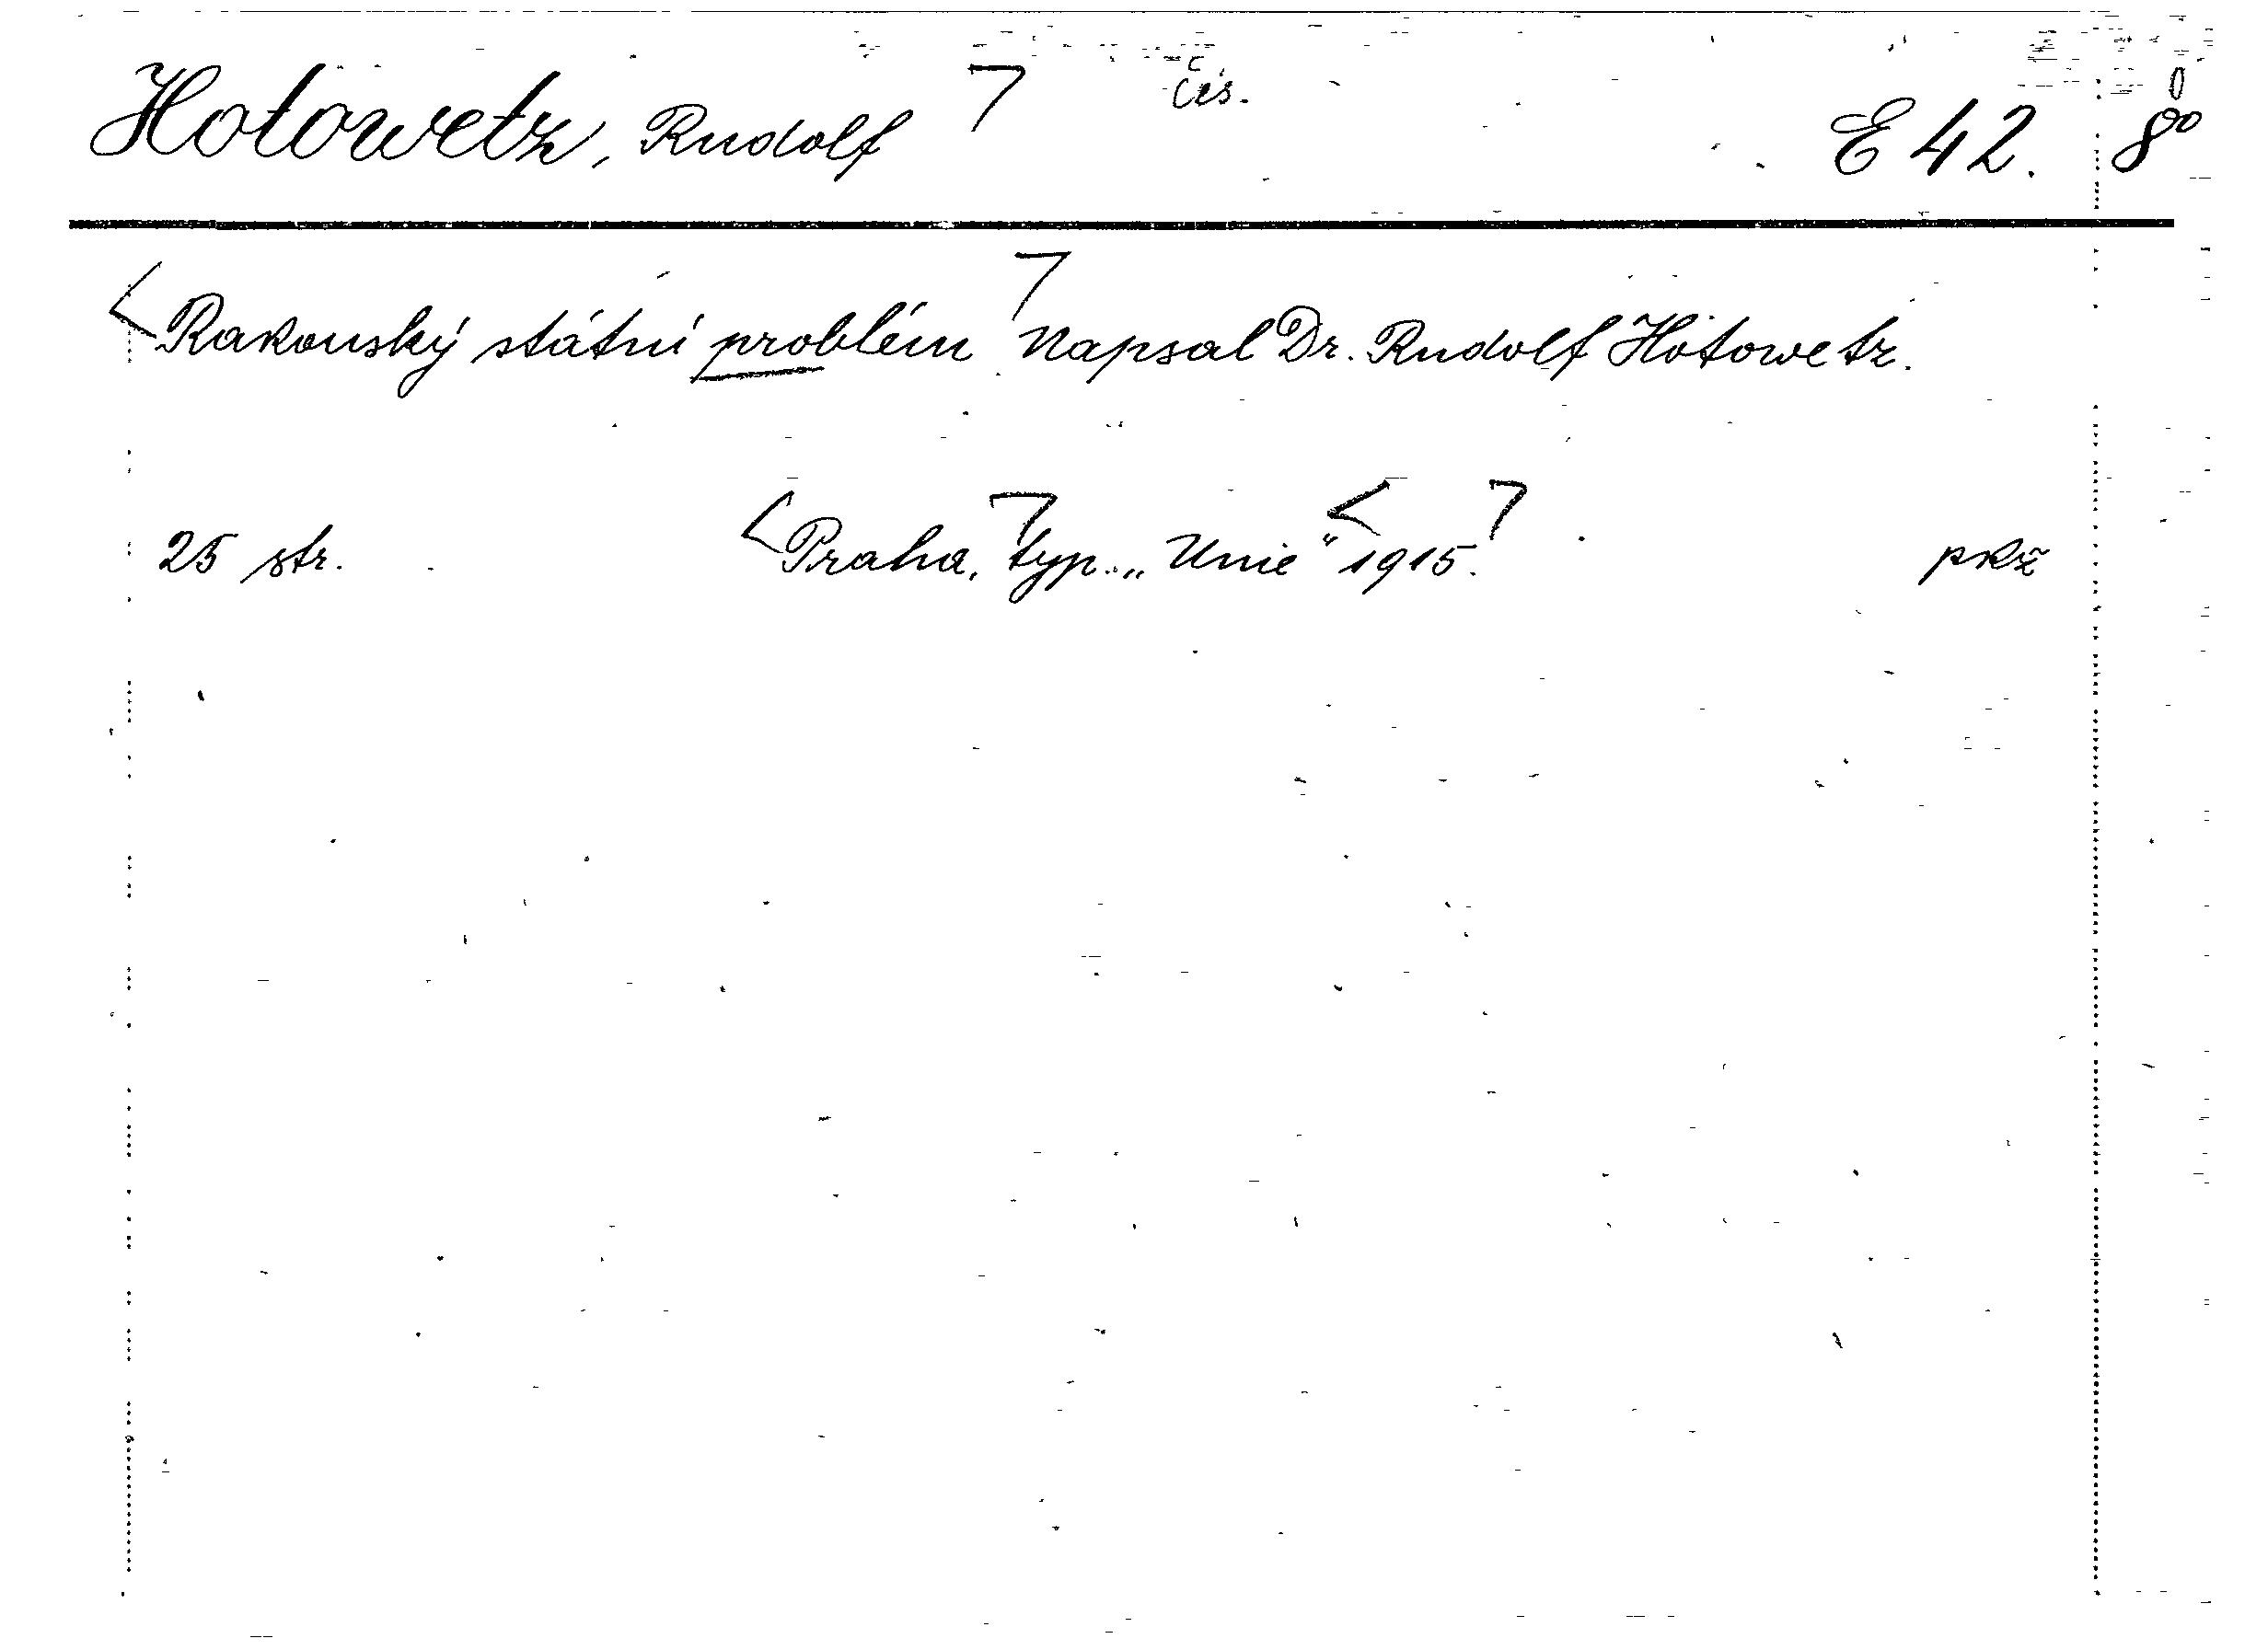 Hotowetz, Rudolf čes. E 42. 8°
Rakouský státní problém Napsal Dr. Rudolf Hotowetz.
25 str. Praha, typ. „Unie“ 1915. pkž